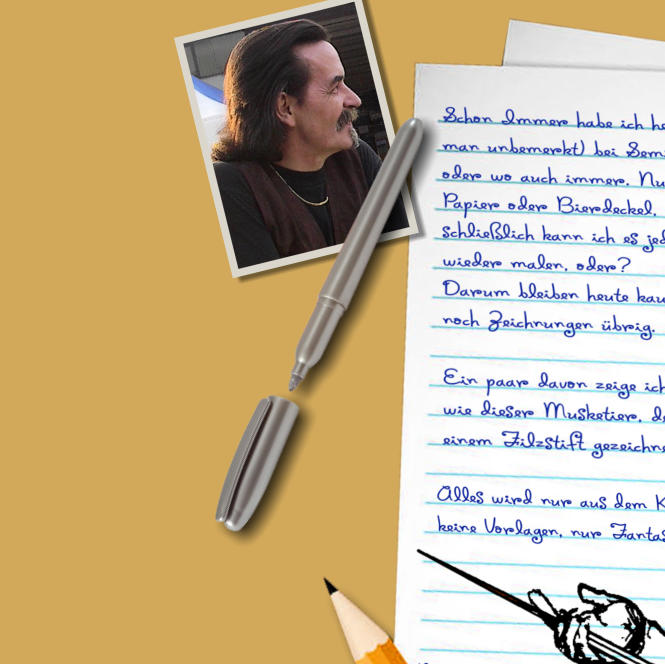 Schon Immer habe ich he
man unbemerkt) bei Semi
oder wo auch immer. Nu
Papier oder Bierdeckel,
schließlich kann ich es jed
wieder malen, oder?
Darum bleiben heute kau
noch Zeichnungen übrig.
Ein paar davon zeige ich
wie dieser Musketier, de
einem Filzstift gezeichne
Alles wird nur aus dem K
keine Vorlagen, nur Fantas